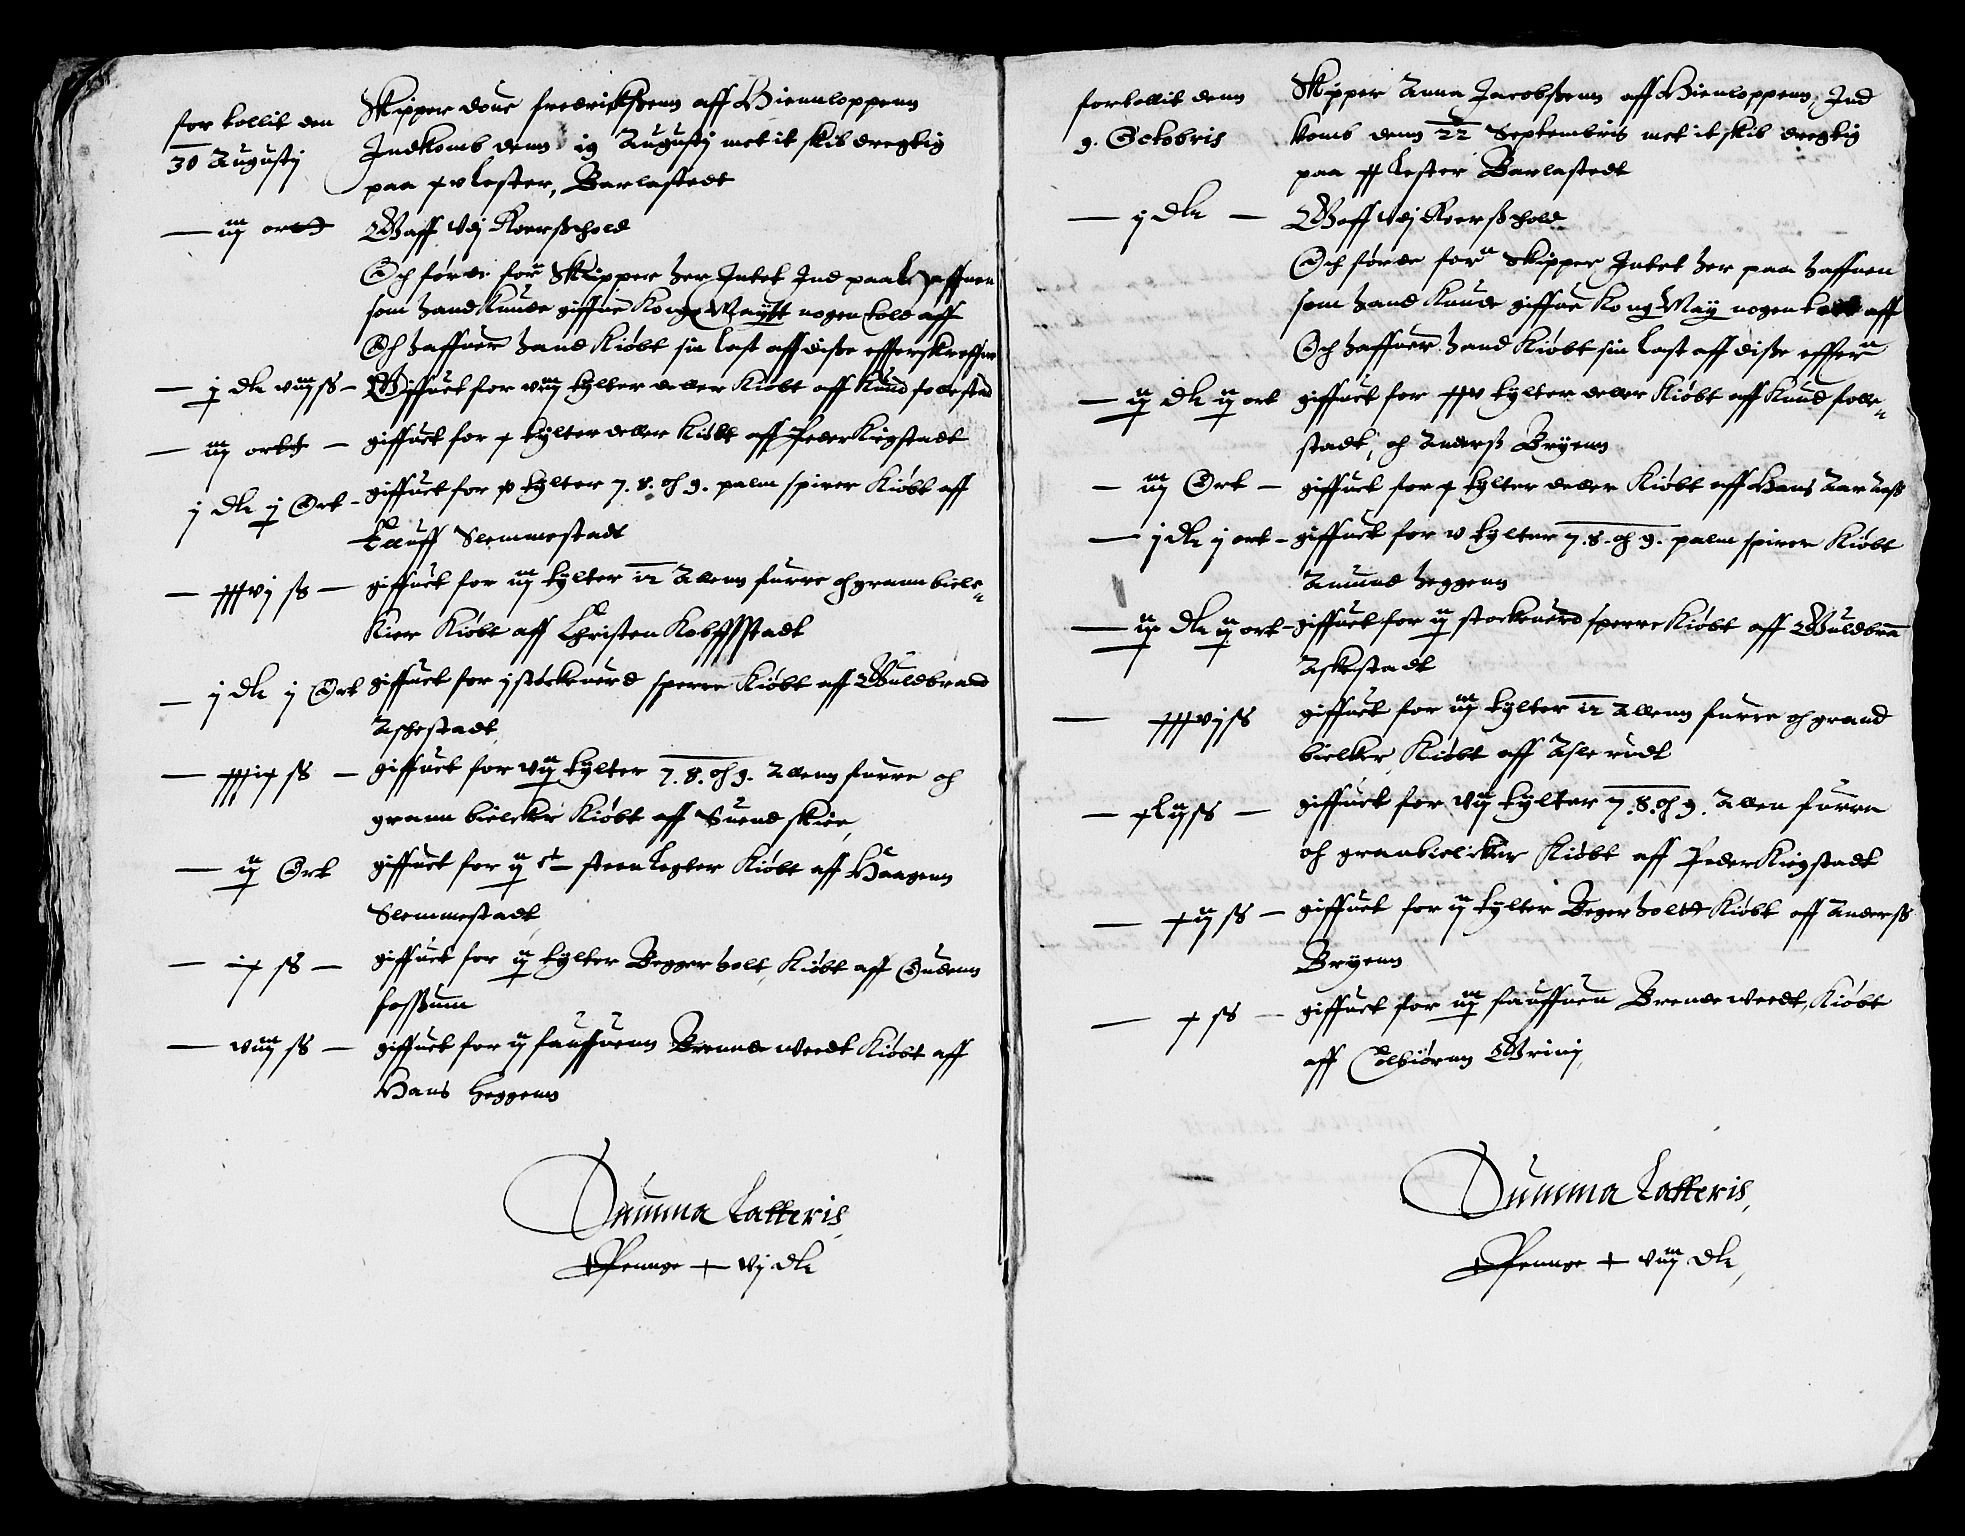 for tollit den
30 Augustj
Skipper doue fredrikßenn aff Hiennloppenn
Indkomb denn 19 Augustj met it skib dregtig
paa xv Lester, Barlastedt
— iij ortt
Gaff Vdj Roerßthold
Och førde forn Skipper her Intet Ind paa haffnen
som hand kunde giffue Kong Maytt nogen told aff
Och haffuer hand Kiøbt sin Last aff diße effterskreffne
— ij dlr viij ß — Giffuet for viij tylter deller Kiøbt aff Knud follestad
— iij ortt — giffuet for x tylter deller Kiøbt aff Peder Kirgstadt
j dlr j Ort — giffuet for v tylter 7. 8. och 9. palm spirer Kiøbt aff
Lauff Slemmestadt
— xxxvj ß — giffuet for iiij tylter 12 Allenn furre och grann bielc-
kier Kiøbt aff Christen Kobstadt
— j dlr j Ort giffuet for j støckuerd sperrer Kiøbt aff Guldbrand
Askestadt
— xxxix ß — giffuet for viij tylter 7. 8. och 9. Allenn furre och
grann bielcker Kiøbt aff Suend skier,
— ij Ort giffuet for ij st steen Legter Kiøbt aff Haagenn
Slemmestadt
— ix ß — giffuet for ij tylter Begger holt, Kiøbt aff Gudenn
foßumm
— viij ß — giffuet for ij fauffuenn Brende weedt Kiøbt aff
Hans Heggenn
Summa Latteris,
Pennge — xvj dlr
fortollit denn
9. Octobris
Skipper Anna Jacobßenn aff Hienloppenn, Ind
komb denn 22 Septembris met it skib dregtig
paa xx Lester Barlastedt
— j dlr —
Gaff Vdj Roerßthold
Och førde forn Skipper Intet her paa haffnen
som hand kunde giffue Kong May nogen told aff
Och haffuer hand Kiøbt sin Last aff diße effter
— ij dlr ij ort giffuet for xxv tylter deller Kiøbt aff Knud folle-
stadt, och Anderß Bryenn
— iij Ort — giffuet for x tylter deller Kiøbt aff Hans Aarueß
— j dlr j ort — giffuet for v tylter 7. 8. och 9. palm spirer Kiøbt
Amund heggenn
— ij dlr ij ort — giffuet for ij stockuerd sperre Kiøbt aff Guldbran
Askestadt
— xxxvj ß giffuet for iiij tylter 12 Allenn furre och grand
bielker, Kiøbt aff Asle rudt
— xlij ß — giffuet for viij tylter 7. 8. och 9. Allen furre
och granbielcker Kiøbt aff Peder Kirgstadt
— xij ß — giffuet for iij tylter Beger holtt Kiøbt aff Anderß
Bryenn
— x ß — giffuet for iiij fauffuen Brende weedt, Kiøbt
aff Colbiørnn Grinj,
Summa Latteris,
Pennge — xviij dlr,